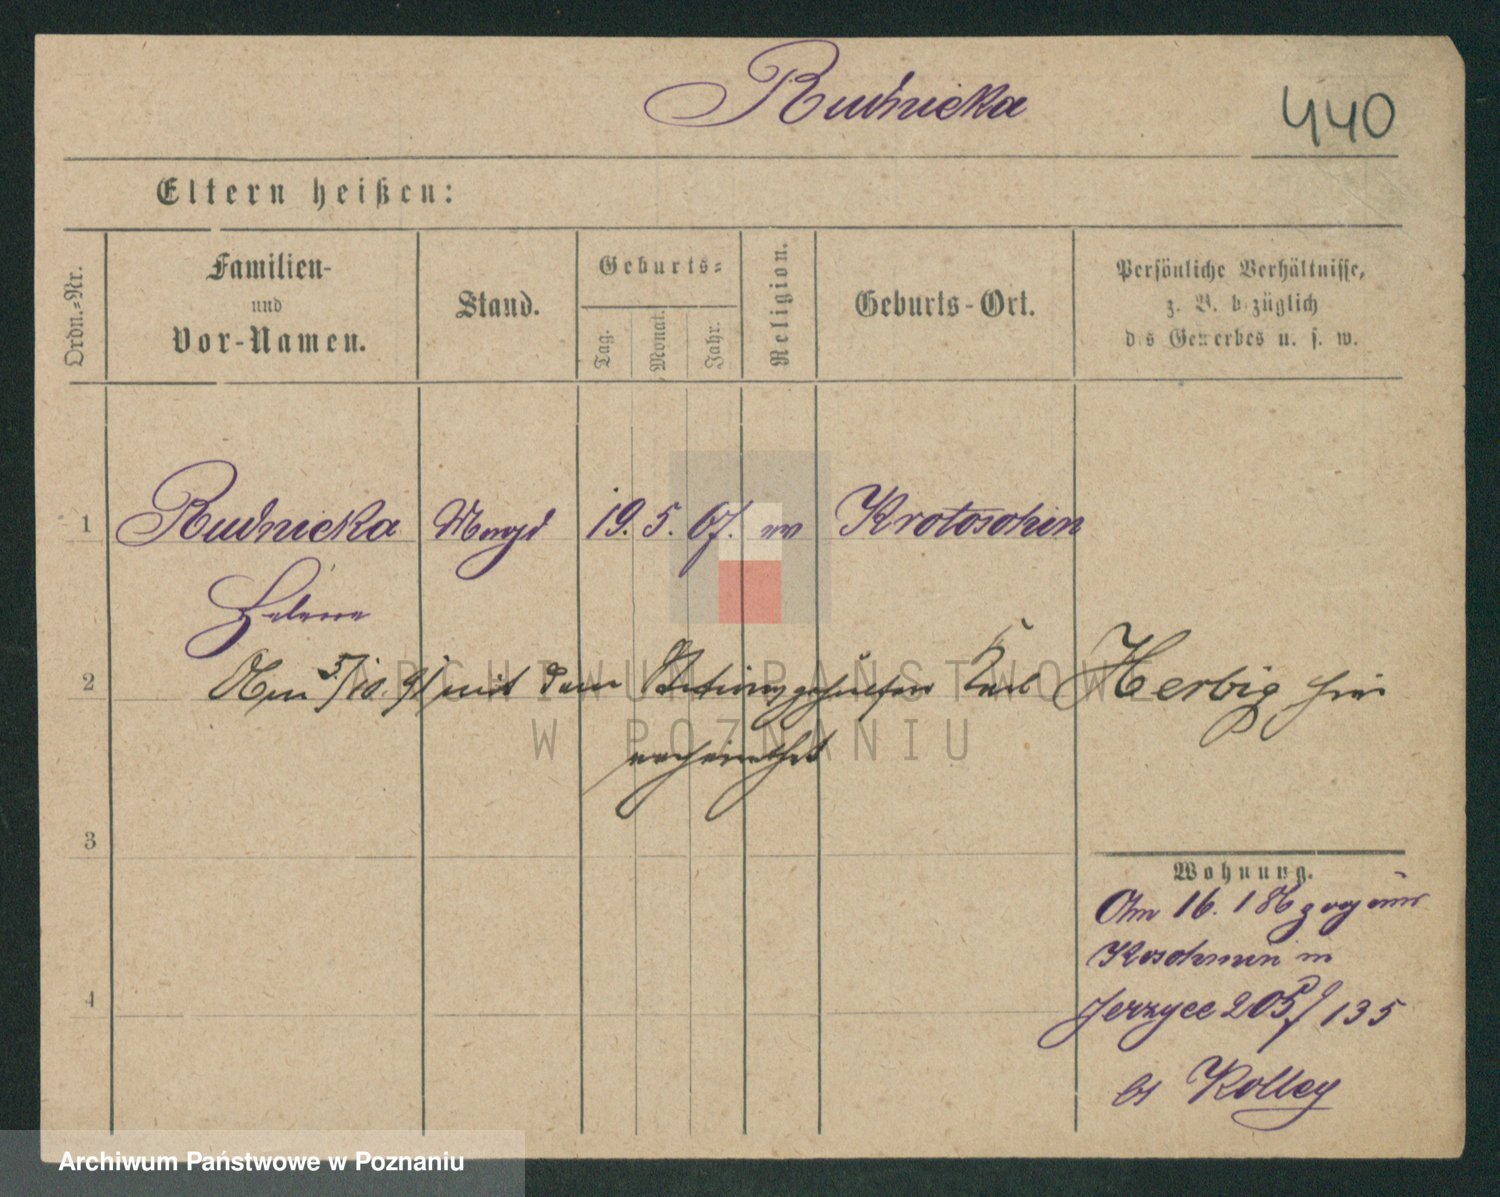 Rudnicka
440
Eltern heißen:
Ordn.-Nr.
Familien-
und
Vor-Namen.
Stand.
Geburts-
Tag.
Monat.
Jahr.
Religion.
Geburts-Ort.
Persönliche Verhältnisse,
z. B. bezüglich
des Gewerbes u. s. w.
1 Rudnicka Magd 19. 5. 67. Krotoschin
Helene
2 Am 5/10. 91 mit dem Stationsgehülfen Karl Herbig hier
verheirathet
3
4
Wohnung.
Am 16. 1 86 zog aus
Koschmin in
Jerzyce 205/135
bei Kolley
ARCHIWUM PAŃSTWOWE
W POZNANIU
Archiwum Państwowe w Poznaniu